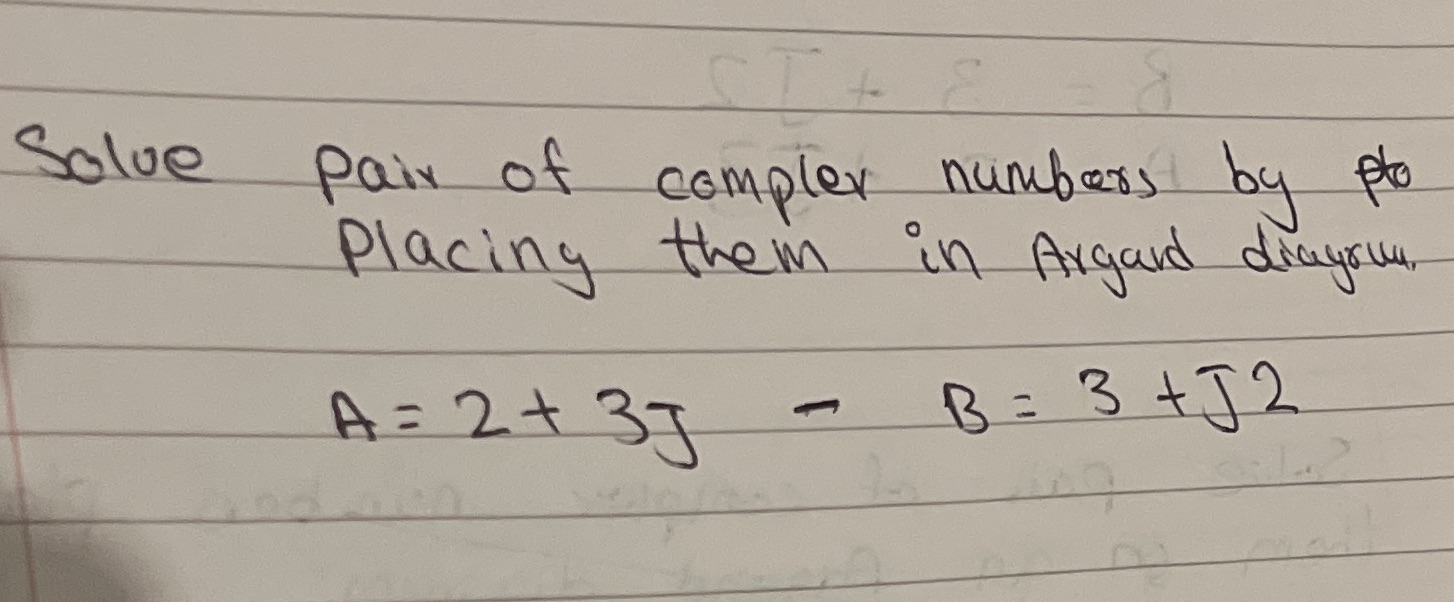 Solve pair of complex numbers by
Placing them in Argard diagram.
A = 2 + 3J - B = 3 + J2